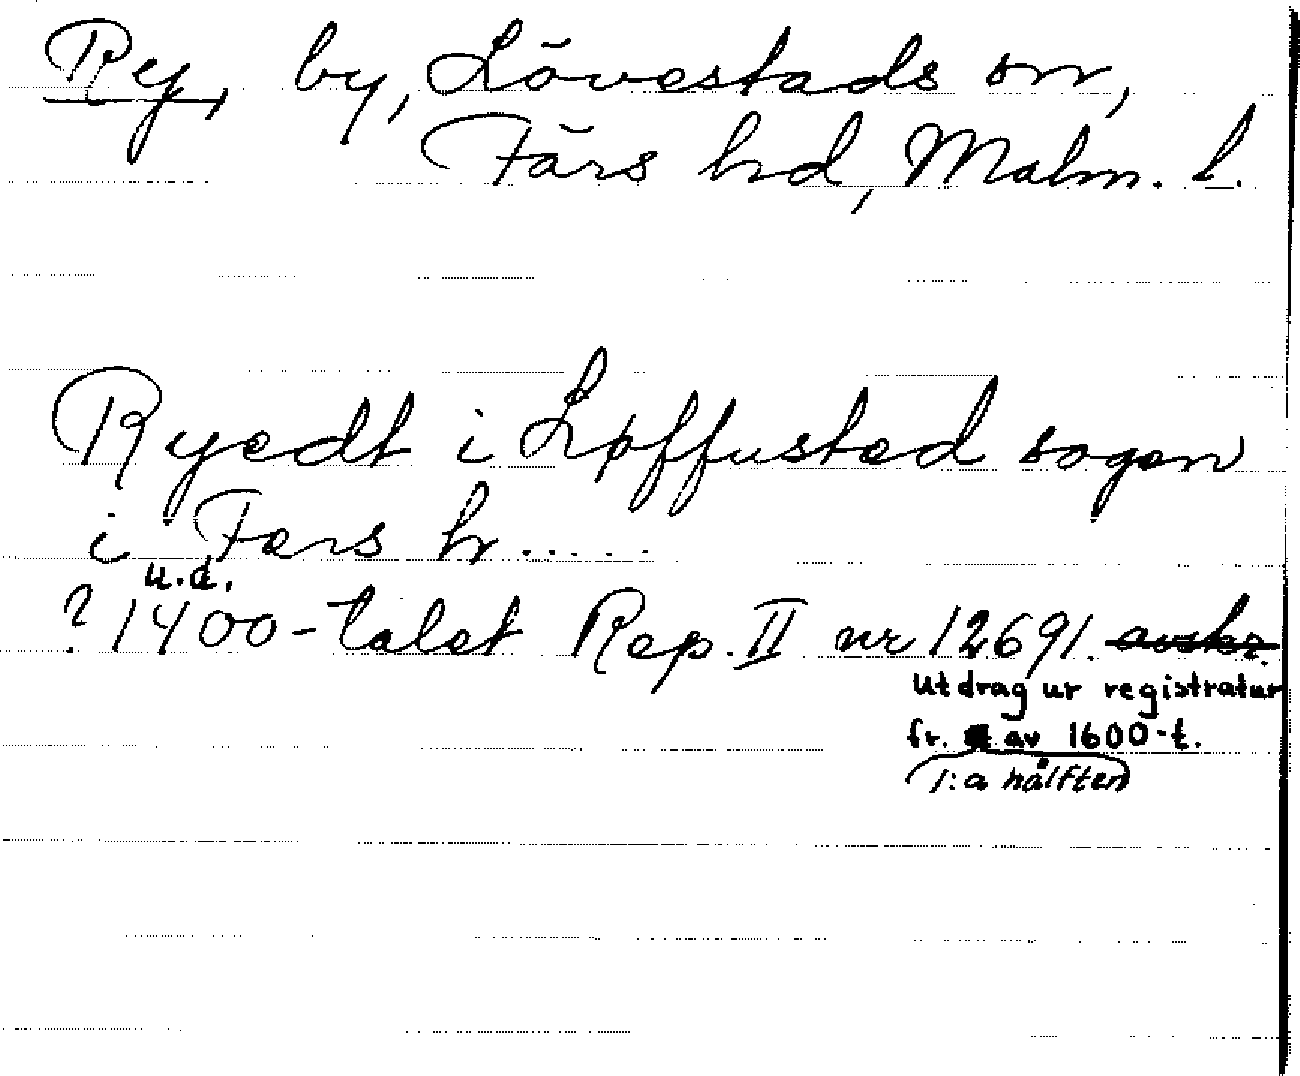 Ry, by, Lövestads sn,
Färs hd, Malm. l.
Ryedt i Løffusted sogen
i Fers hr.....
u.d.
? 1400-talet Rep. II nr 12691. avskr.
Utdrag ur registratur
fr. av 1600-t.
1:a hälften